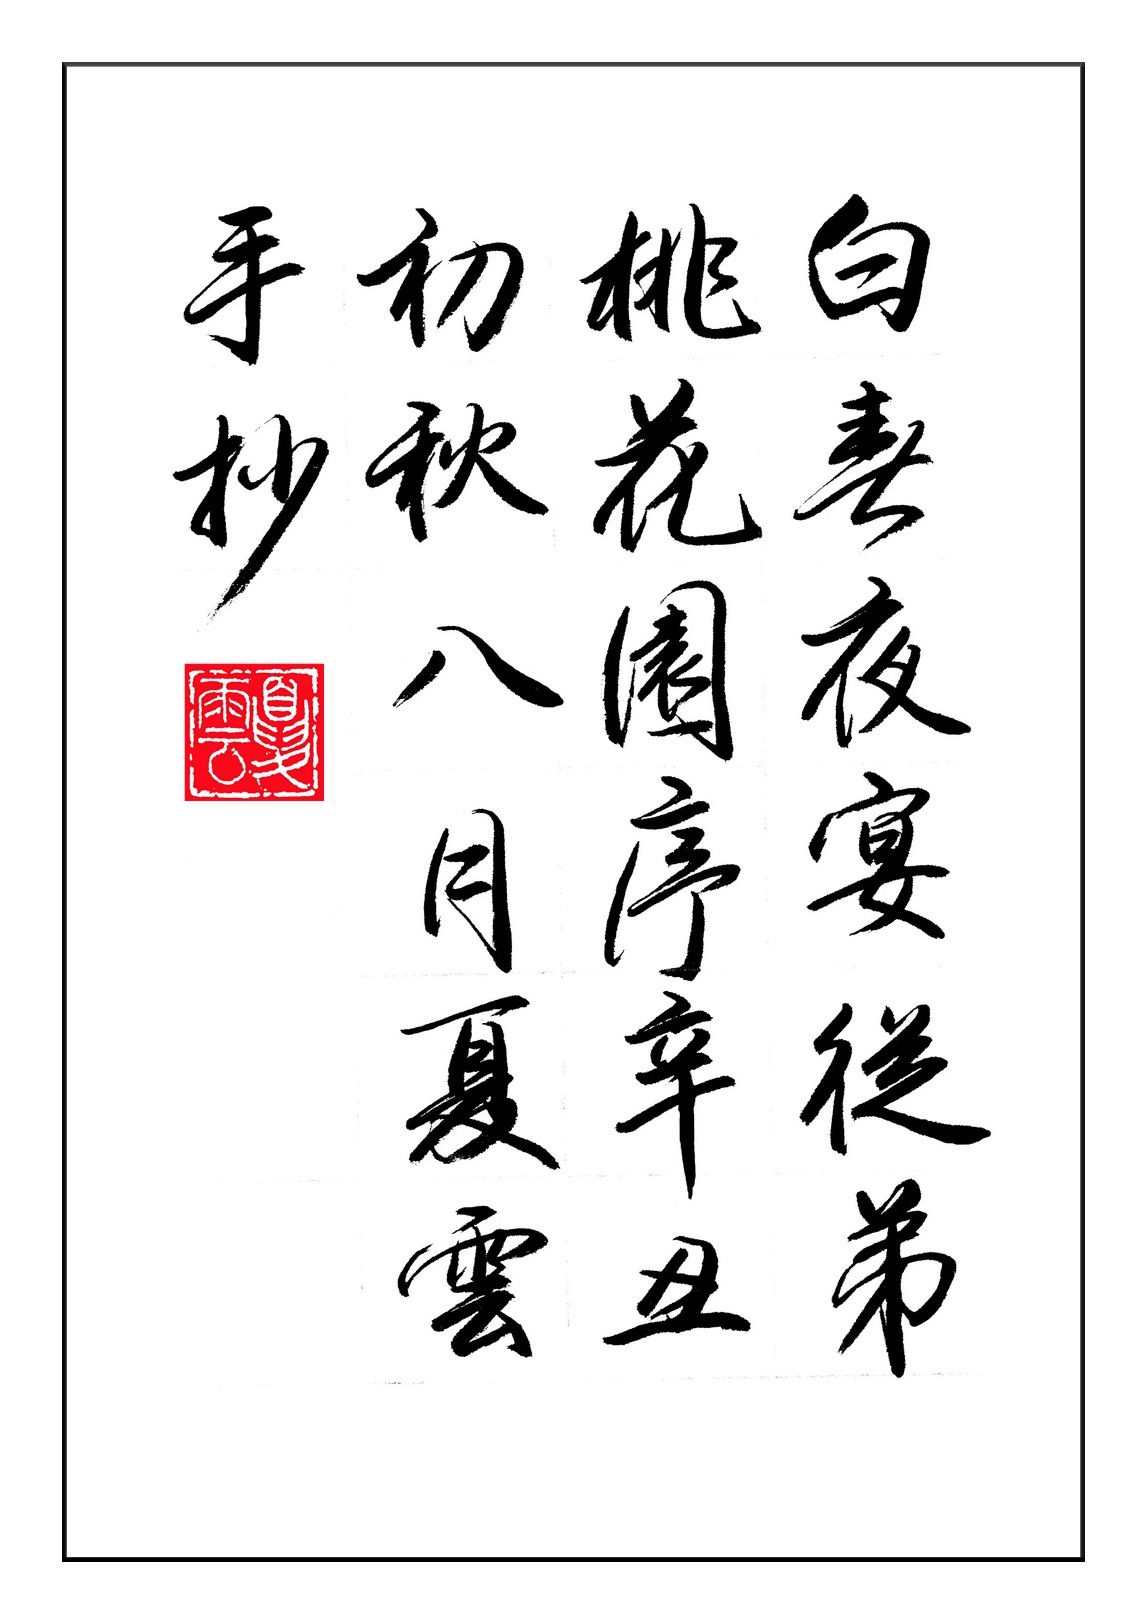 白春夜宴從弟
桃花園序辛丑
初秋八月夏雲
手抄
夏雲